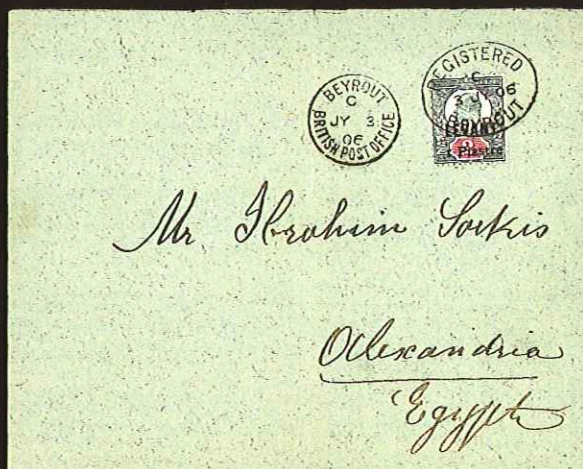 BEYROUT
C
JY 3
06
BRITISH POST OFFICE
REGISTERED
C
3 JY 06
BEYROUT
LEVANT
1 Piastre
Mr Ibrahim Sorkis
Alexandria
Egypt